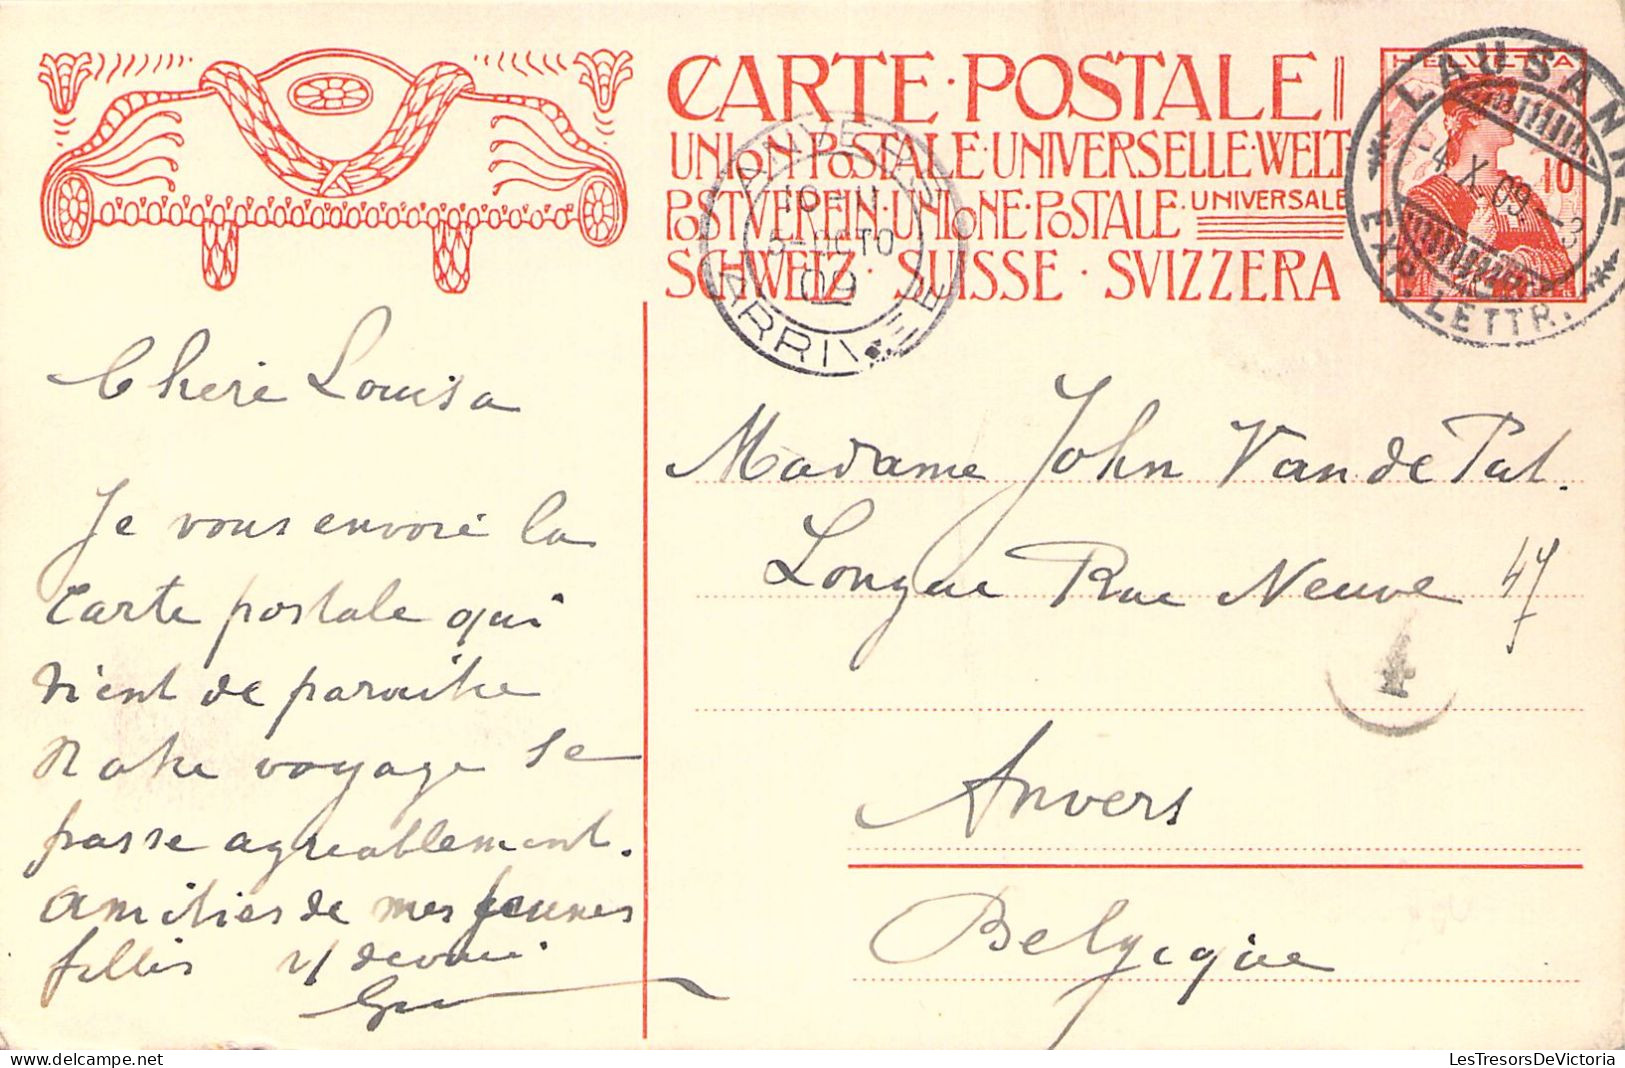 CARTE·POSTALE
UNION·POSTALE·UNIVERSELLE·WELT
POSTVEREIN·UNIONE·POSTALE·UNIVERSALE
SCHWEIZ·SUISSE·SVIZZERA
HELVETIA
10
LAUSANNE
-4.X.09.-3
EXP. LETTR.
ANVERS
10-11
5-OCTO
09
ARRIVEE
Chère Louisa
Je vous envoie la
Carte postale qui
vient de paraître
Notre voyage se
passe agréablement.
Amitiés de mes jeunes
filles v/ dévoué
Madame John Van de Put.
Longue Rue Neuve 47
4
Anvers
Belgique
LesTresorsDeVictoria